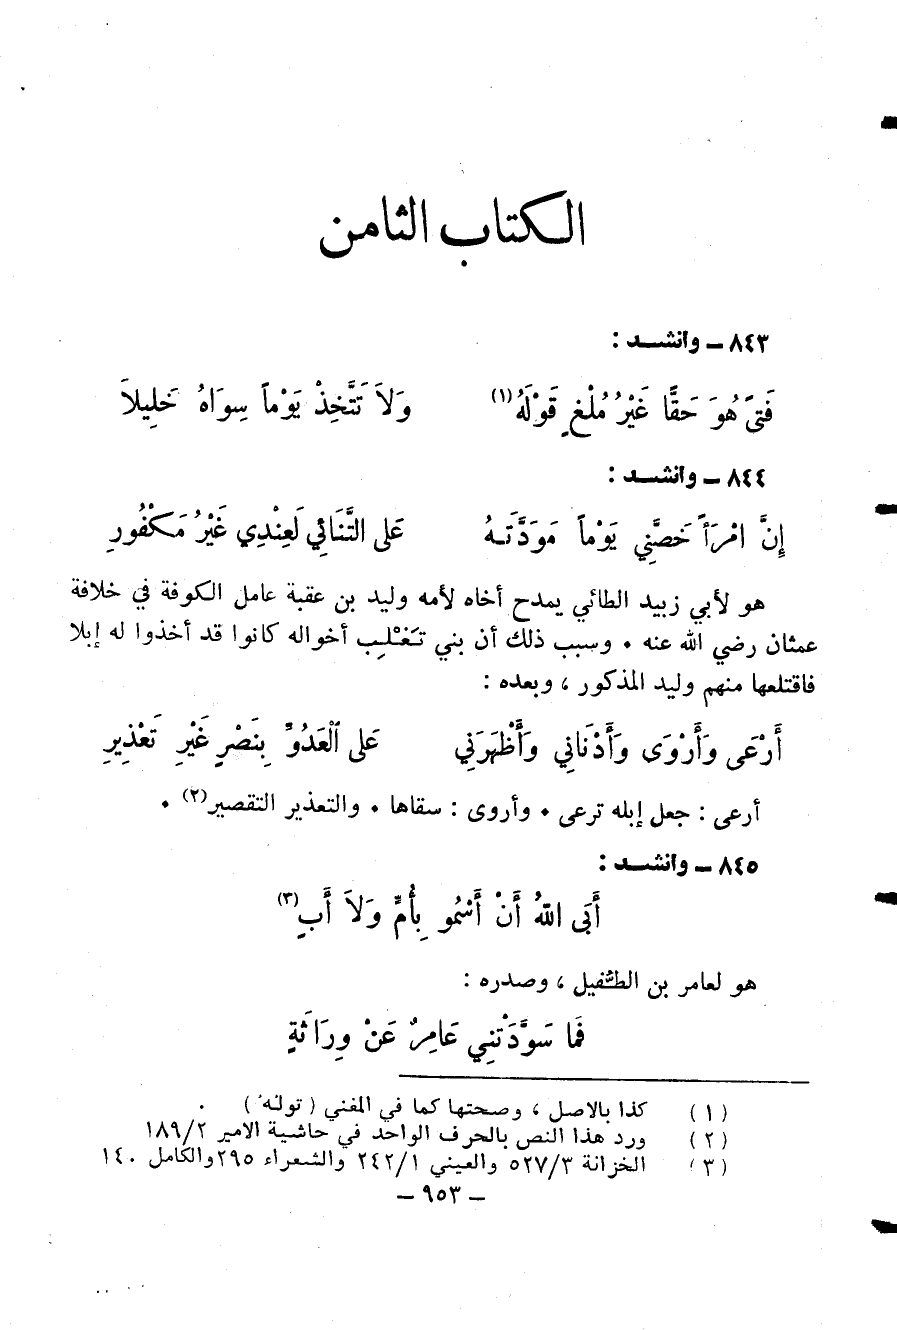 الكتاب الثامن
٨٤٣ – وانشد :
فَتىً هُوَ حَقًّا غَيْرُ مُلْغٍ قَوْلَهُ(١) وَلاَ تَتَّخِذْ يَوْماً سِوَاهُ خَلِيلاَ
٨٤٤ – وانشد :
إِنَّ امْرَأً خَصَّنِي يَوْماً مَوَدَّتَهُ عَلى التَّنَائِي لَعِنْدِي غَيْرُ مَكْفُورِ
هو لأبي زبيد الطائي يمدح أخاه لأمه وليد بن عقبة عامل الكوفة في خلافة
عمثان رضي الله عنه . وسبب ذلك أن بني تَغْلِب أخواله كانوا قد أخذوا له إبلا
فاقتلعها منهم وليد المذكور ، وبعده :
أَرْعَى وَأَرْوَى وَأَدْنَانِي وَأَظْهَرَنِي عَلى الْعَدُوِّ بِنَصْرٍ غَيْرِ تَعْذِيرِ
أرعى : جعل إبله ترعى . وأروى : سقاها . والتعذير التقصير(٢) .
٨٤٥ – وانشد :
أَبَى اللهُ أَنْ أَسْمُو بِأُمٍّ وَلاَ أَبٍ(٣)
هو لعامر بن الطُّفيل ، وصدره :
فَمَا سَوَّدَتْنِي عَامِرٌ عَنْ وِرَاثَةٍ
(١) كذا بالاصل ، وصحتها كما في المغني ( تولَه ) .
(٢) ورد هذا النص بالحرف الواحد في حاشية الامير ١٨٩/٢
(٣) الخزانة ٥٢٧/٣ والعيني ٢٤٢/١ والشعراء ٢٩٥ والكامل ١٤٠
– ٩٥٣ –